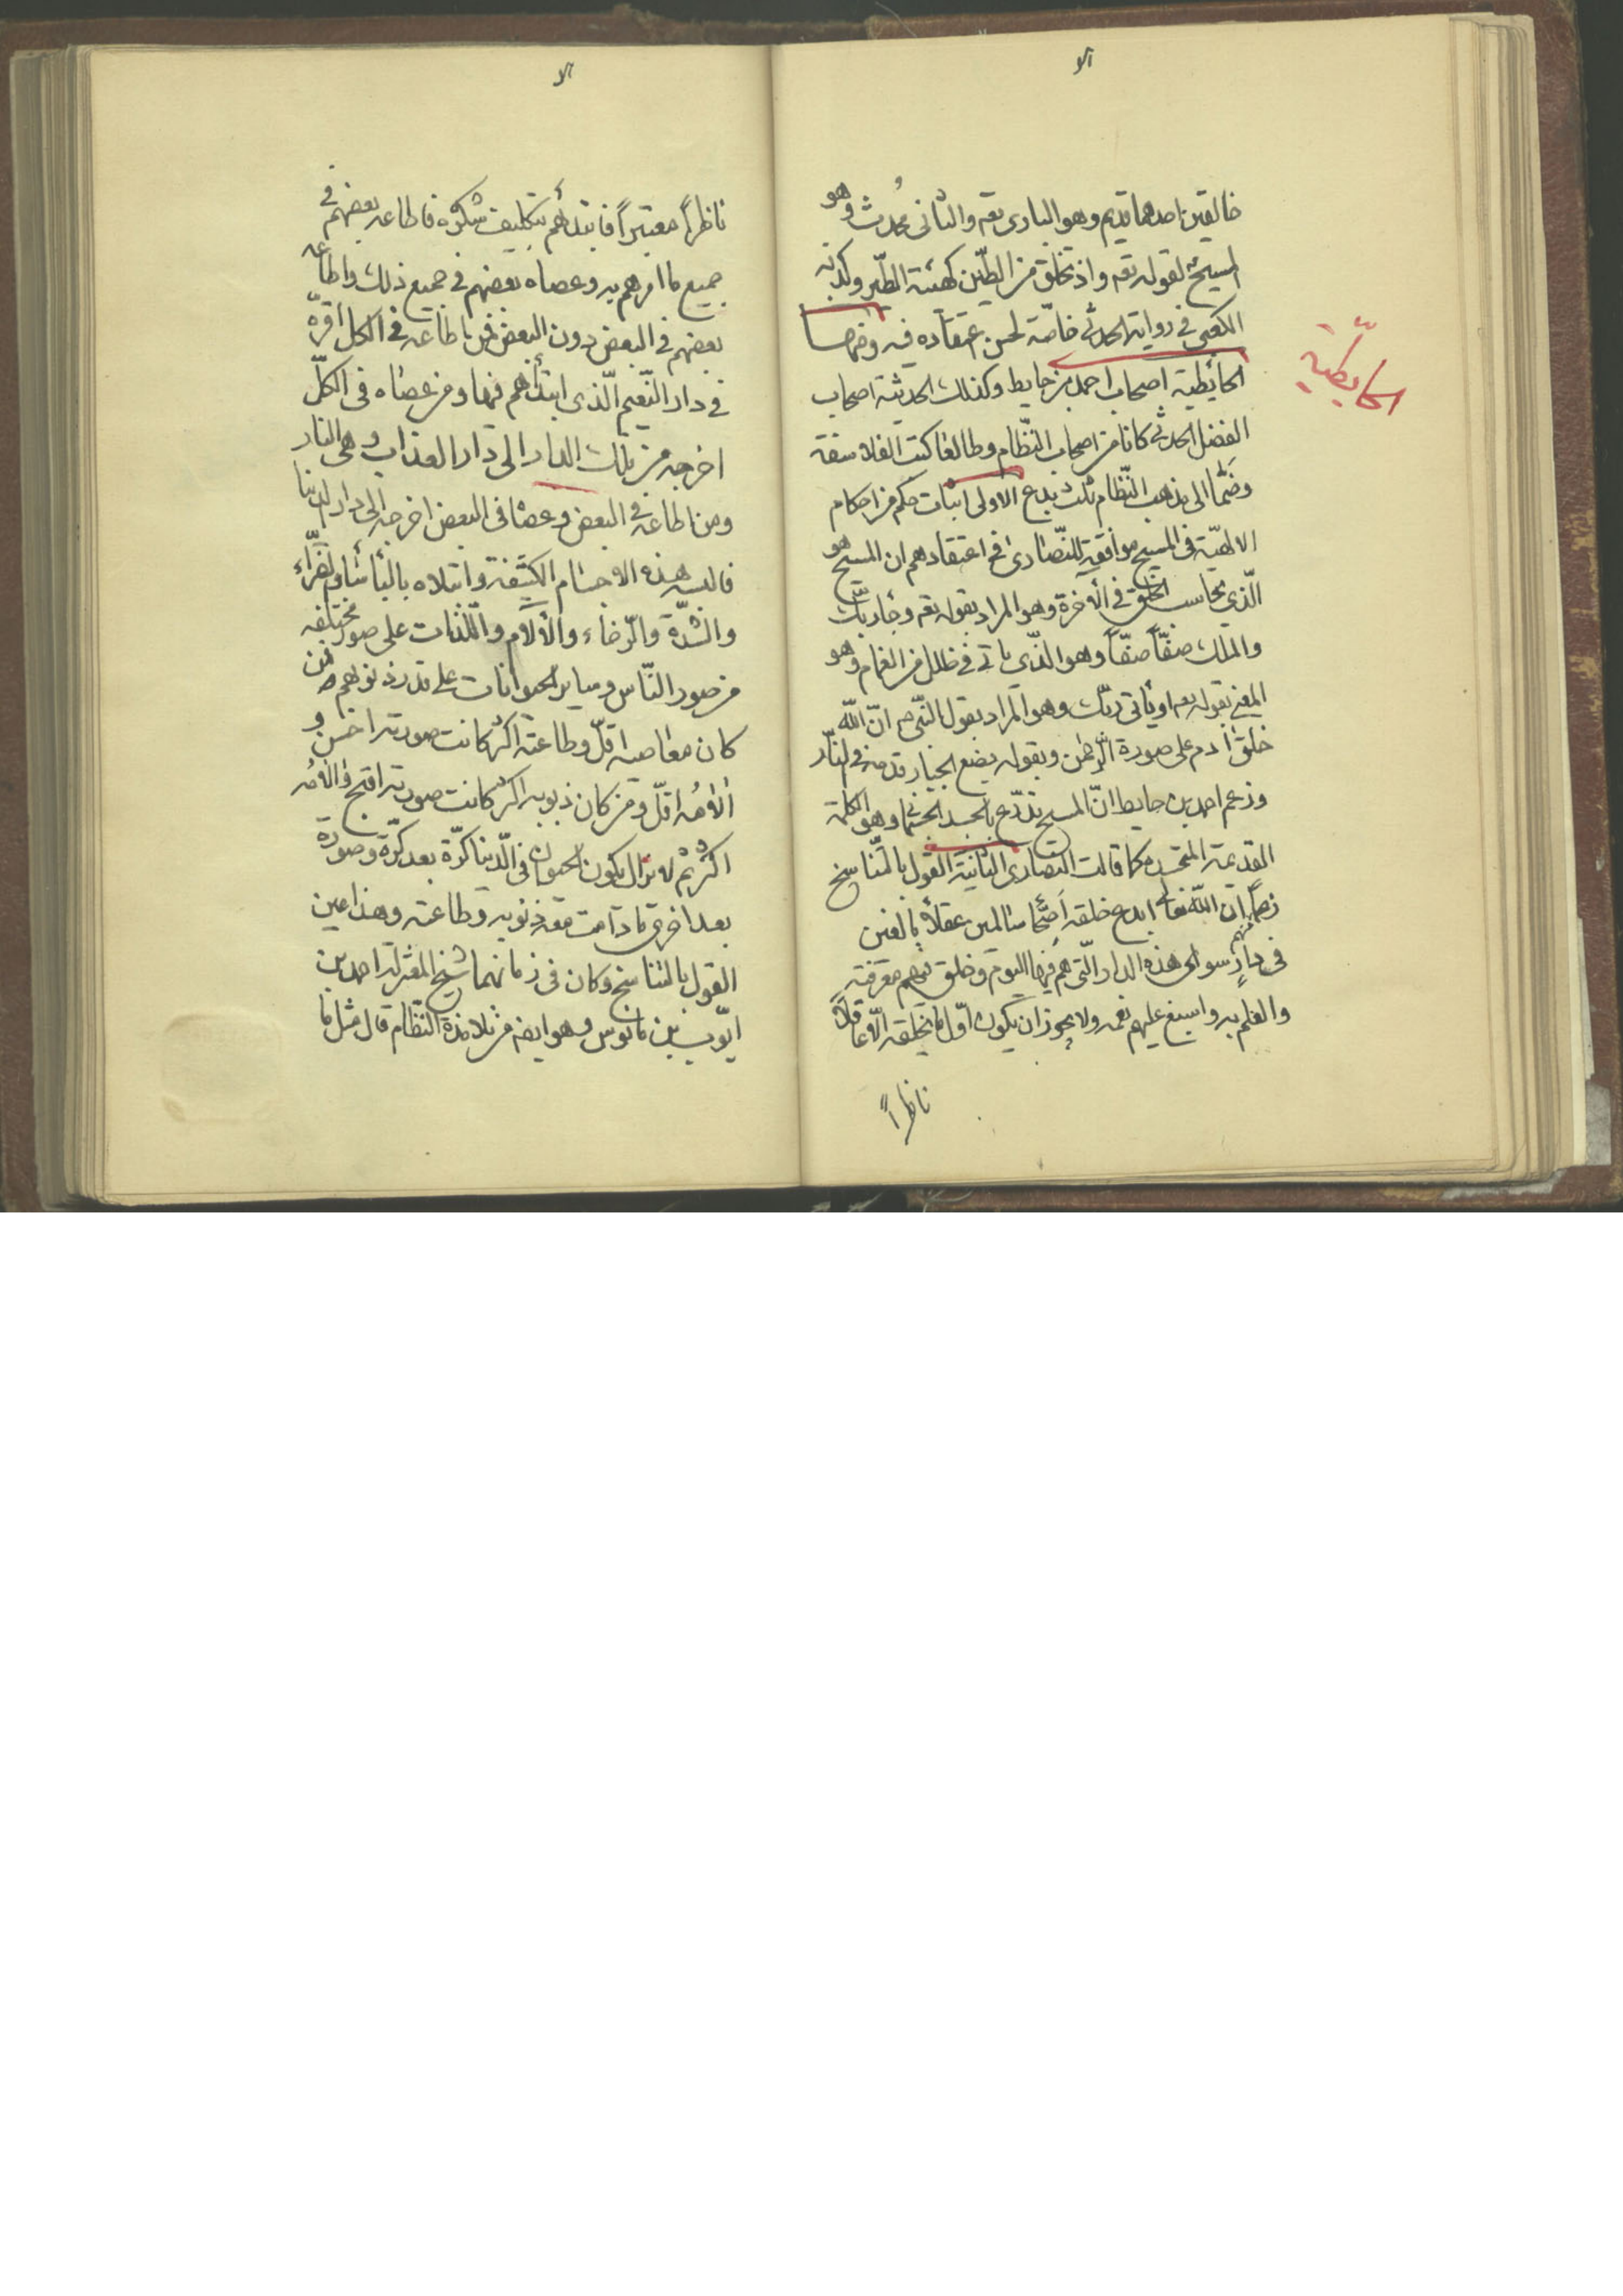 خالقين احدهما قديم وهو البارى تعه والثانى محُدث وهو
المسيح لقوله تعه واذ تخلق من الطّين كهيئة الطّير وكذبه
الكعبى فى رواية الحدثى خاصّة لحسن اعتقاده فيه ومنها
الحائطية اصحاب احمد بن حايط وكذلك الحدثية اصحاب
الحايطّية
الفضل الحدثى كانا من اصحاب النّظام وطالعا كتب الفلاسفة
وضَمّا الى مذهب النّظام ثلث بدع الاولى اثبات حكم من احكام
الالهيّة فى المسيح موافقة للنّصارى فى اعتقادهم ان المسيح هو
الّذي يحاسب الخلق فى الآخرة وهو المراد بقوله تعه وجاء ربّك
والملك صفّاً صفّاً وهو الّذي ياتى فى ظلل من الغمام وهو
المعنى بقوله تعه او يأتى ربّك وهو المراد بقول النّبى ص انّ اللّه
خلق آدم على صورة الرّحمن وبقوله يضع الجبار قدمه فى النّار
وزعم احمد بن حايط انّ المسيح تدرّع بالجسد الجثمانى وهو الكلمة
القديمة المتجسدة كما قالت النصارى الثانية القول بالتّناسخ
زعما انّ اللّه تعالى ابدع خلقه اَصّحا سالمين عقلاً بالغين
فى دارٍ سوى هذه الدار الّتى هم فيها اليوم وخلق فيهم معرفته
والعلم به واسبغ عليهم نعمه ولا يجوز ان يكون اوّل ما يخلقه الّا عاقلاً
ناظراً
ناظراً معتبراً فابتدأهم بتكليف شكره فاطاعه بعضهم فى
جميع ما امرهم به وعصاه بعضهم فى جميع ذلك واطاعه
بعضهم فى البعض دون البعض فمن اطاعه فى الكل اقرّه
فى دار النّعيم الّذى ابتدأهم فيها ومن عصاه فى الكلّ
اخرجه من تلك الدار الى دار العذاب وهى النار
ومن اطاعه فى البعض وعصا فى البعض اخرجه الى دار الدنيا
فالبسه هذه الاجسام الكثيفة وابتلاه بالبأساء والضّراء
والشدّة والرّخاء والآلام واللّذات على صور مختلفه
من صور النّاس وساير الحيوانات على قدر ذنوبهم فمن
كان معاصيه اقلّ وطاعته اكثر كانت صورته احسن و
آلامُه اقلّ ومن كان ذنوبه اكثر كانت صورته اقبح وآلامُه
اكثر ثم لا يزال يكون الحيوان فى الدّنيا كرّة بعد كرّة وصورة
بعد اخرى ما دامت معه ذنوبه وطاعته وهذا عين
القول بالتناسخ وكان فى زمانهما شيخ المعتزلة احمد بن
ايّوب بن مانوس وهو ايضه من تلامذة النّظام قال مثل ما